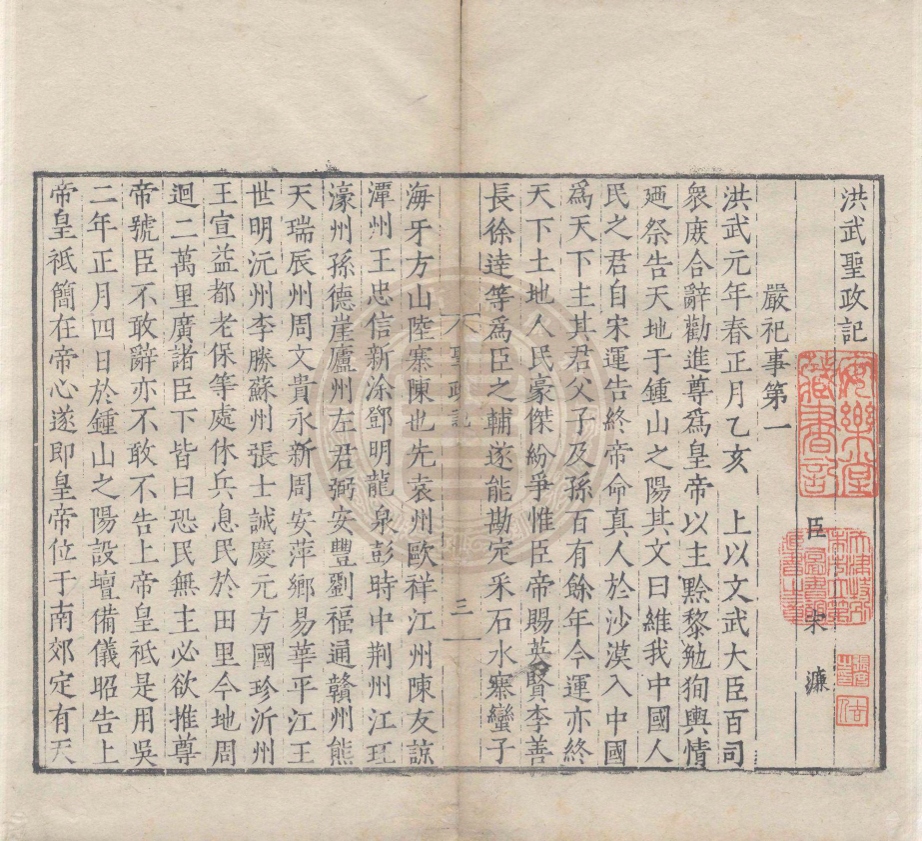 洪武聖政記
臣宋濂
嚴祀事第一
洪武元年春正月乙亥　上以文武大臣百司
衆庻合辭勸進尊爲皇帝以主黔黎勉狥輿情
廼祭告天地于鍾山之陽其文曰維我中國人
民之君自宋運告終帝命真人於沙漠入中國
爲天下主其君父子及孫百有餘年今運亦終
天下土地人民豪傑紛爭惟臣帝賜英賢李善
長徐逹等爲臣之輔遂能勘定采石水寨蠻子
聖政記
三
海牙方山陸寨陳也先袁州歐祥江州陳友諒
潭州王忠信新淦鄧明龍泉彭時中荆州江珏
濠州孫德崖廬州左君弼安豐劉福通贛州熊
天瑞辰州周文貴永新周安萍鄉易華平江王
世明沅州李勝蘇州張士誠慶元方國珍沂州
王宣益都老保等處休兵息民於田里今地周
迴二萬里廣諸臣下皆曰恐民無主必欲推尊
帝號臣不敢辭亦不敢不告上帝皇祇是用吳
二年正月四日於鍾山之陽設壇備儀昭告上
帝皇祇簡在帝心遂即皇帝位于南郊定有天
安樂堂藏書記